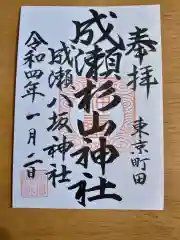 奉拝
東京町田
成瀬杉山神社
成瀬八坂神社
令和四年一月二日